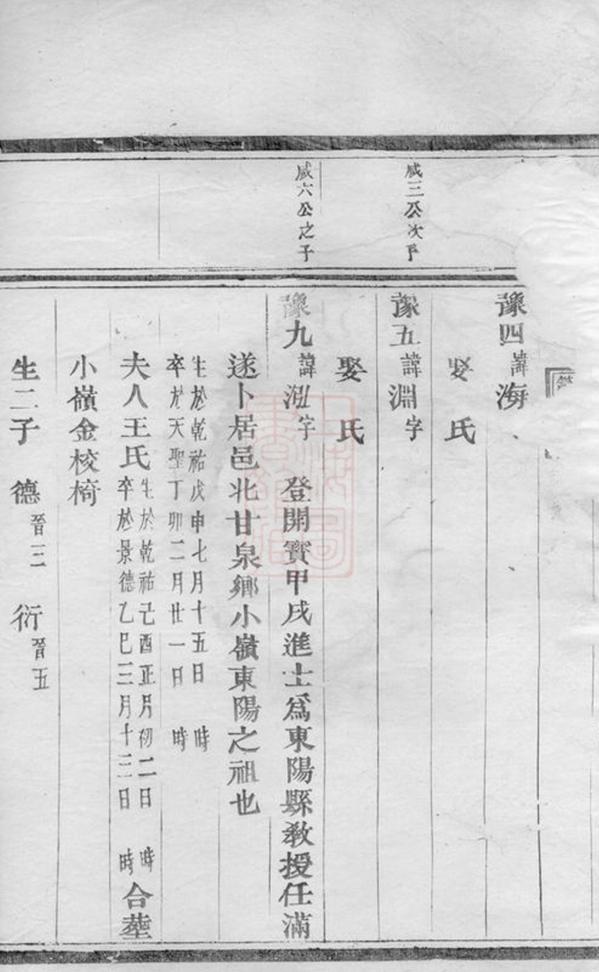 豫四諱海
娶氏
咸三公次子
豫五諱淵字
娶氏
咸六公之子
豫九諱泓字 登開寳甲戌進士爲東陽縣教授任滿
遂卜居邑北甘泉鄉小嶺東陽之祖也
生於乾祐戊申七月十五日 時
卒於天聖丁卯二月廿一日 時
夫人王氏 生於乾祐己酉正月初二日 時
卒於景德乙巳三月十三日 時 合塟
小嶺金校椅
生二子 德晉三 衍晉五